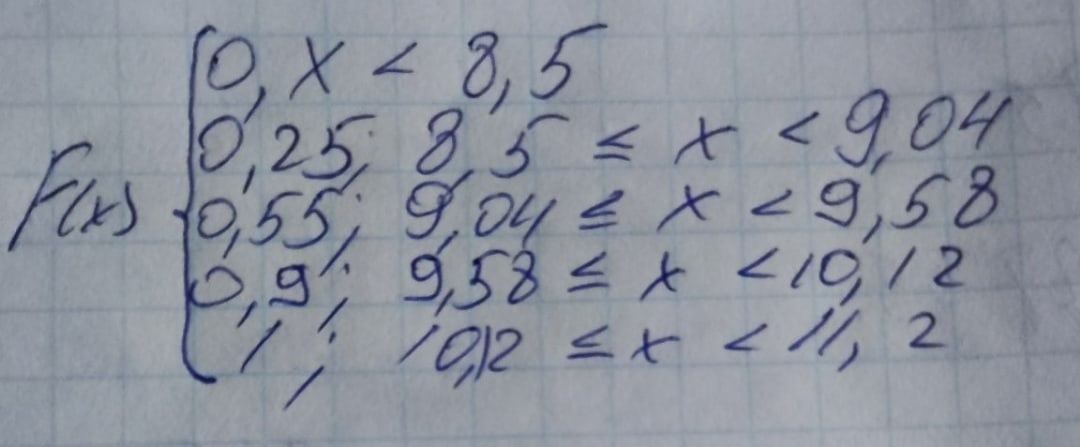 F(x) { 0, x < 8,5
0,25; 8,5 ≤ x < 9,04
0,55; 9,04 ≤ x < 9,58
0,9; 9,58 ≤ x < 10,12
1; 10,12 ≤ x < 11,2